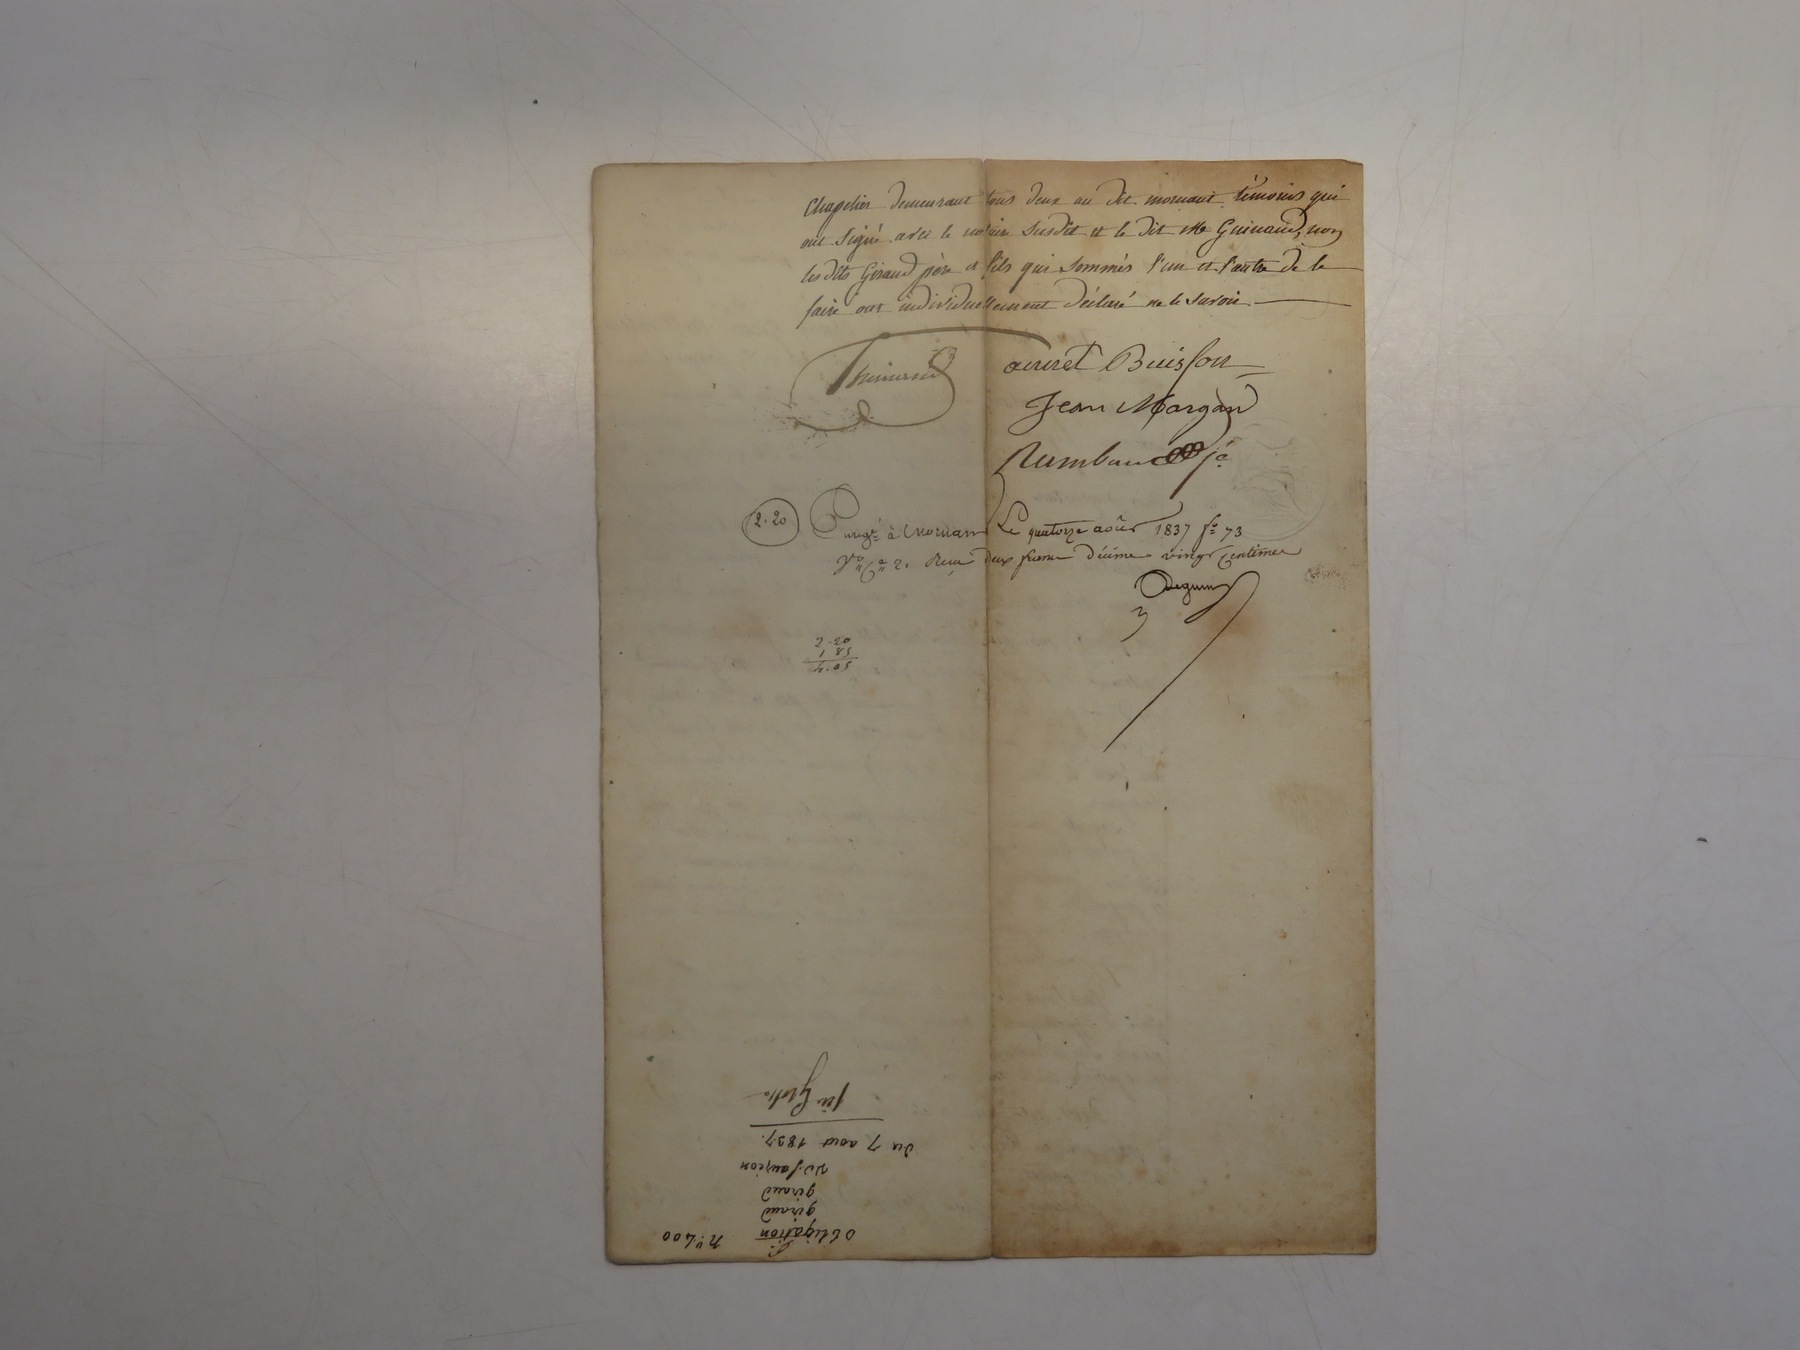 Chapelier demeurant tous deux au dit mornant témoins qui
ont signé avec le notaire susdit et le dit Me Guinand, non
les dits Giraud père et fils qui sommés l'un et l'autre de le
faire ont individuellement déclaré ne le savoir
Guinand
Buisson
Jean Margand
2.20
Enregé à Mornant Le quatorze août 1837 fo 73
Vo Ca 2. Reçu deux francs décime vingt centimes
2.20
1 85
4.05
no. 400
obligation
giraud
giraud
du 7 aout 1837.